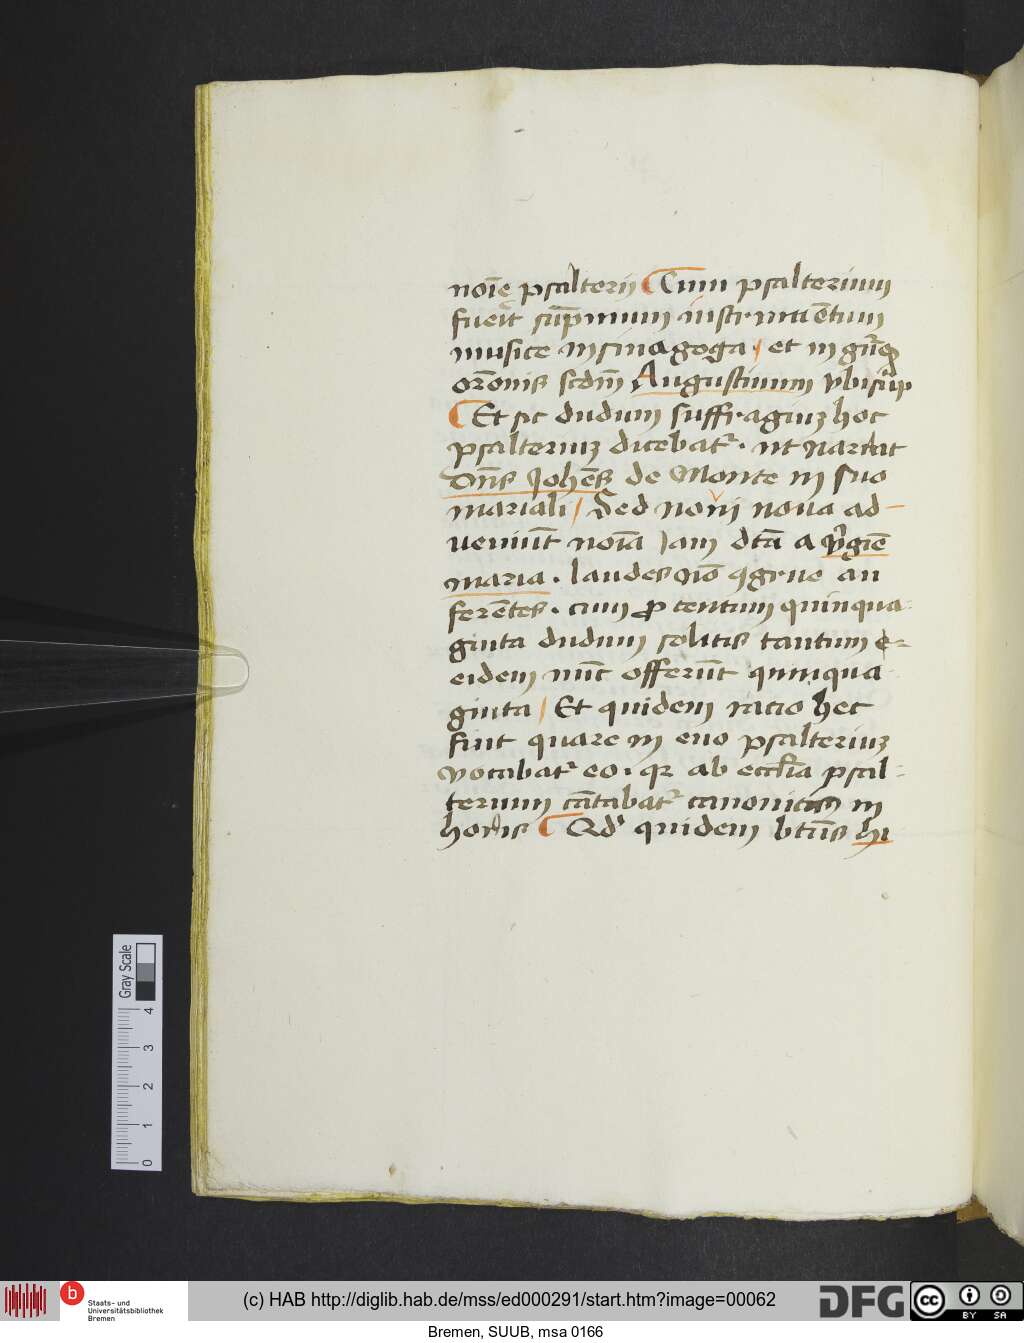 noīe psalterij Cum psalterium
fuerit sup̄mum instrumētum
musice in sinagoga / et in gn̄e
orōnis scdm̄ Augustinum vbisup͛
Et sic dudum suffragiuʒ hoc
psalteriuʒ dicebatᷣ . ut narrat
Dn̄s Joh̄es de Monte in suo
mariali / Sed novi nova ad-
veniūt noīa Jam dc̄a a v͛gīe
maria . laudes v͛o ꝯgrue an
ferētes . cum ꝓ centum quinqua-
ginta dudum solitis tantum e-
eidem nūc offerūt quinqua-
ginta / Et quidem racio hec
fuit quare in evo psalteriuʒ
vocabatᷣ eo . qꝛ ab eccl̄ia psal-
terium cātabatᷣ canonicis in
horis Qd͛ quidem btūs hi
Gray Scale
4
3
2
1
0
b
Staats- und
Universitätsbibliothek
Bremen
(c) HAB http://diglib.hab.de/mss/ed000291/start.htm?image=00062
DFG
cc
BY SA
Bremen, SUUB, msa 0166